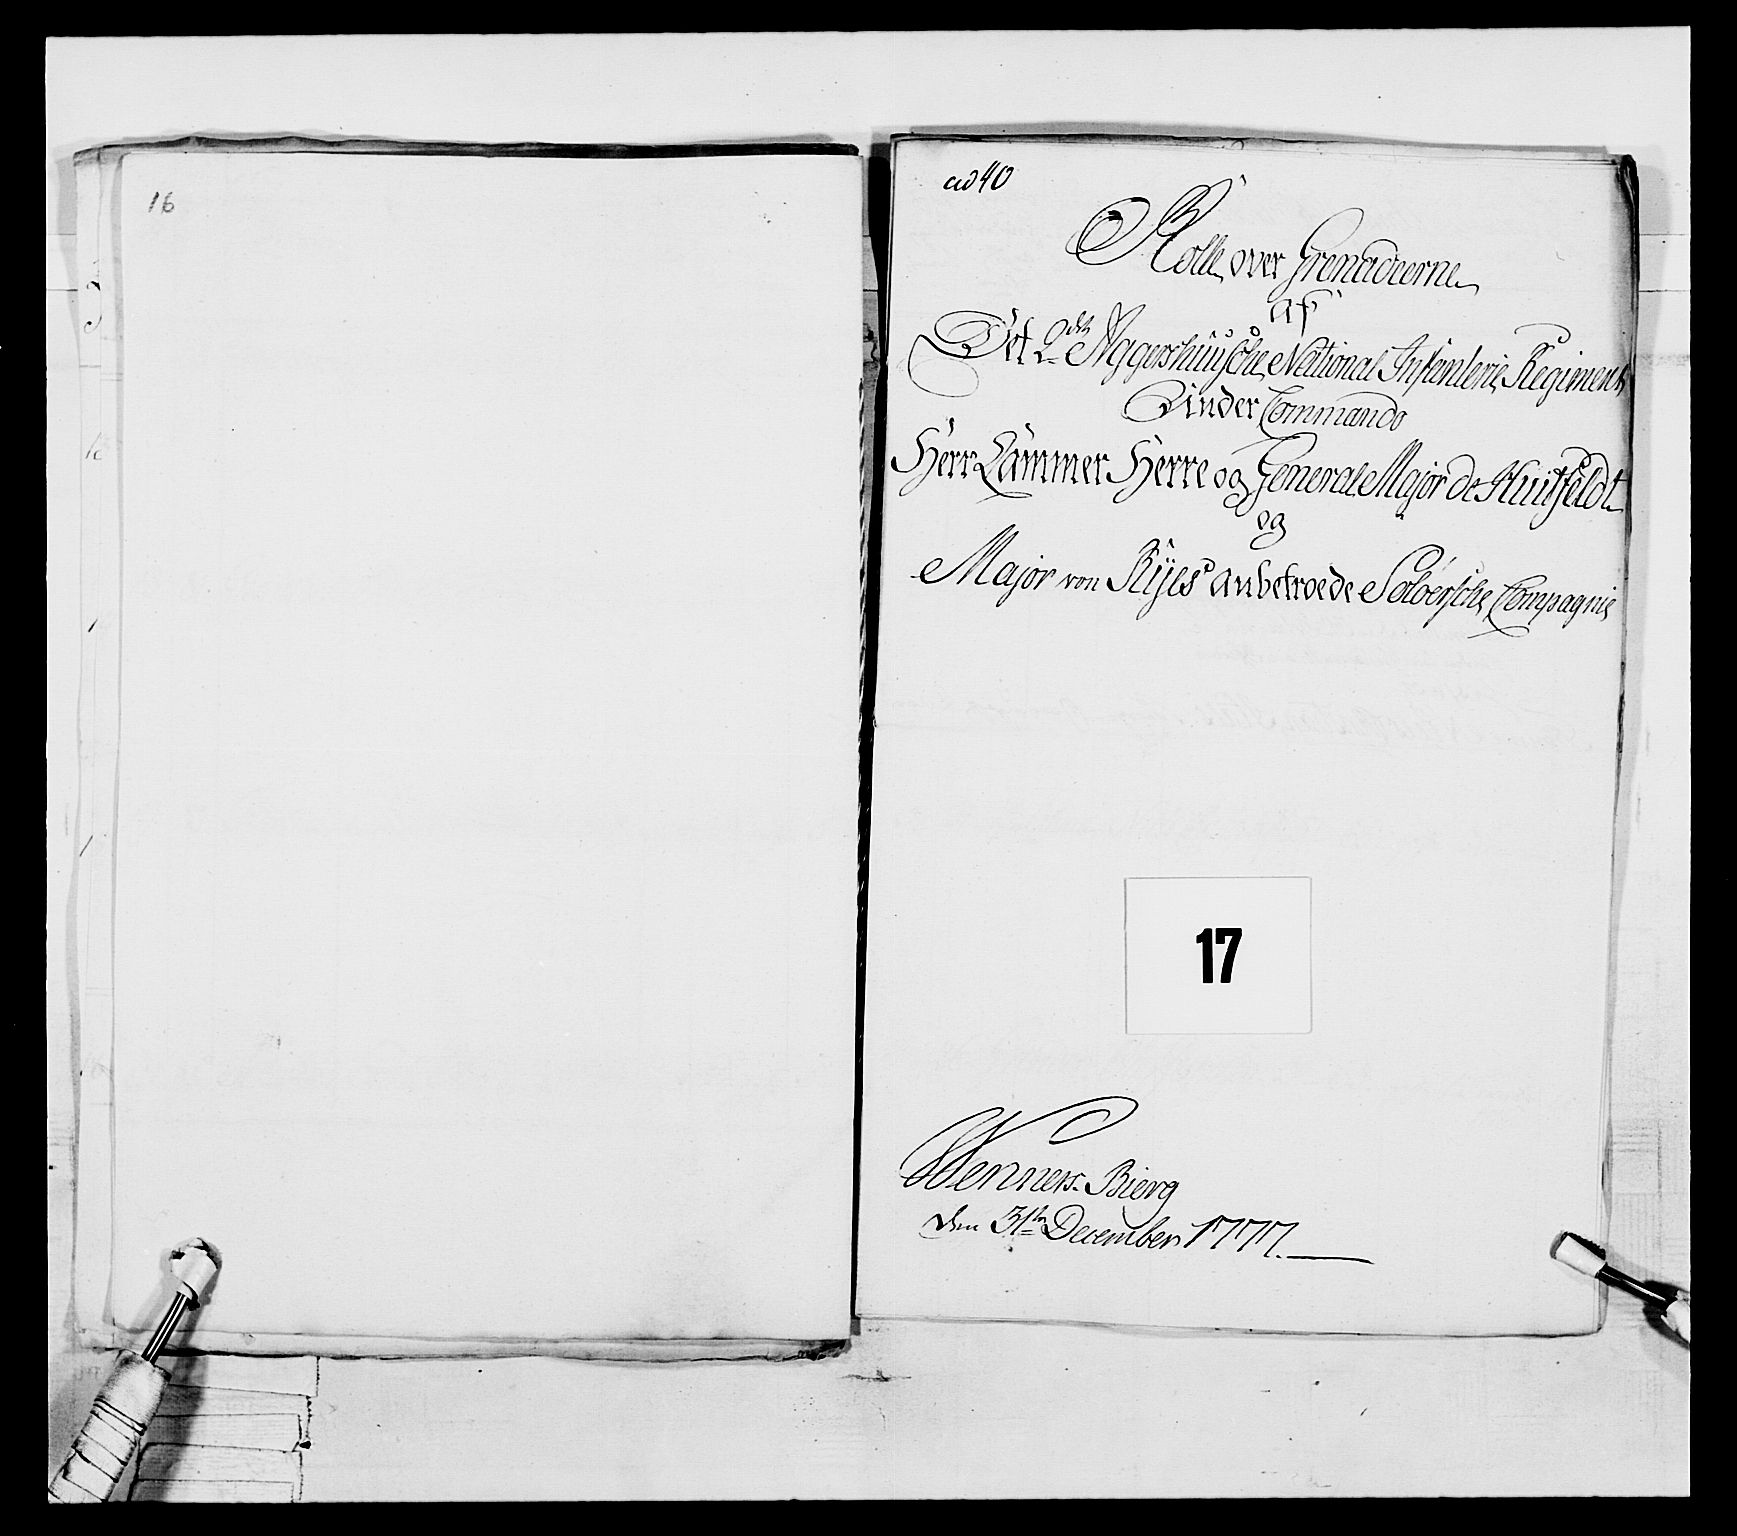 16
ad 40
Rolle over Grenadeerne
af
Det 2de Aggershuusche National Infanterie Regiment
Under Commando
Herr Cammer Herre og General Major de Huitfeldt
og
Major von Rÿes anbetroede Soloersche Compagnie
17
Wenners Bierg
den 31te December 1777.